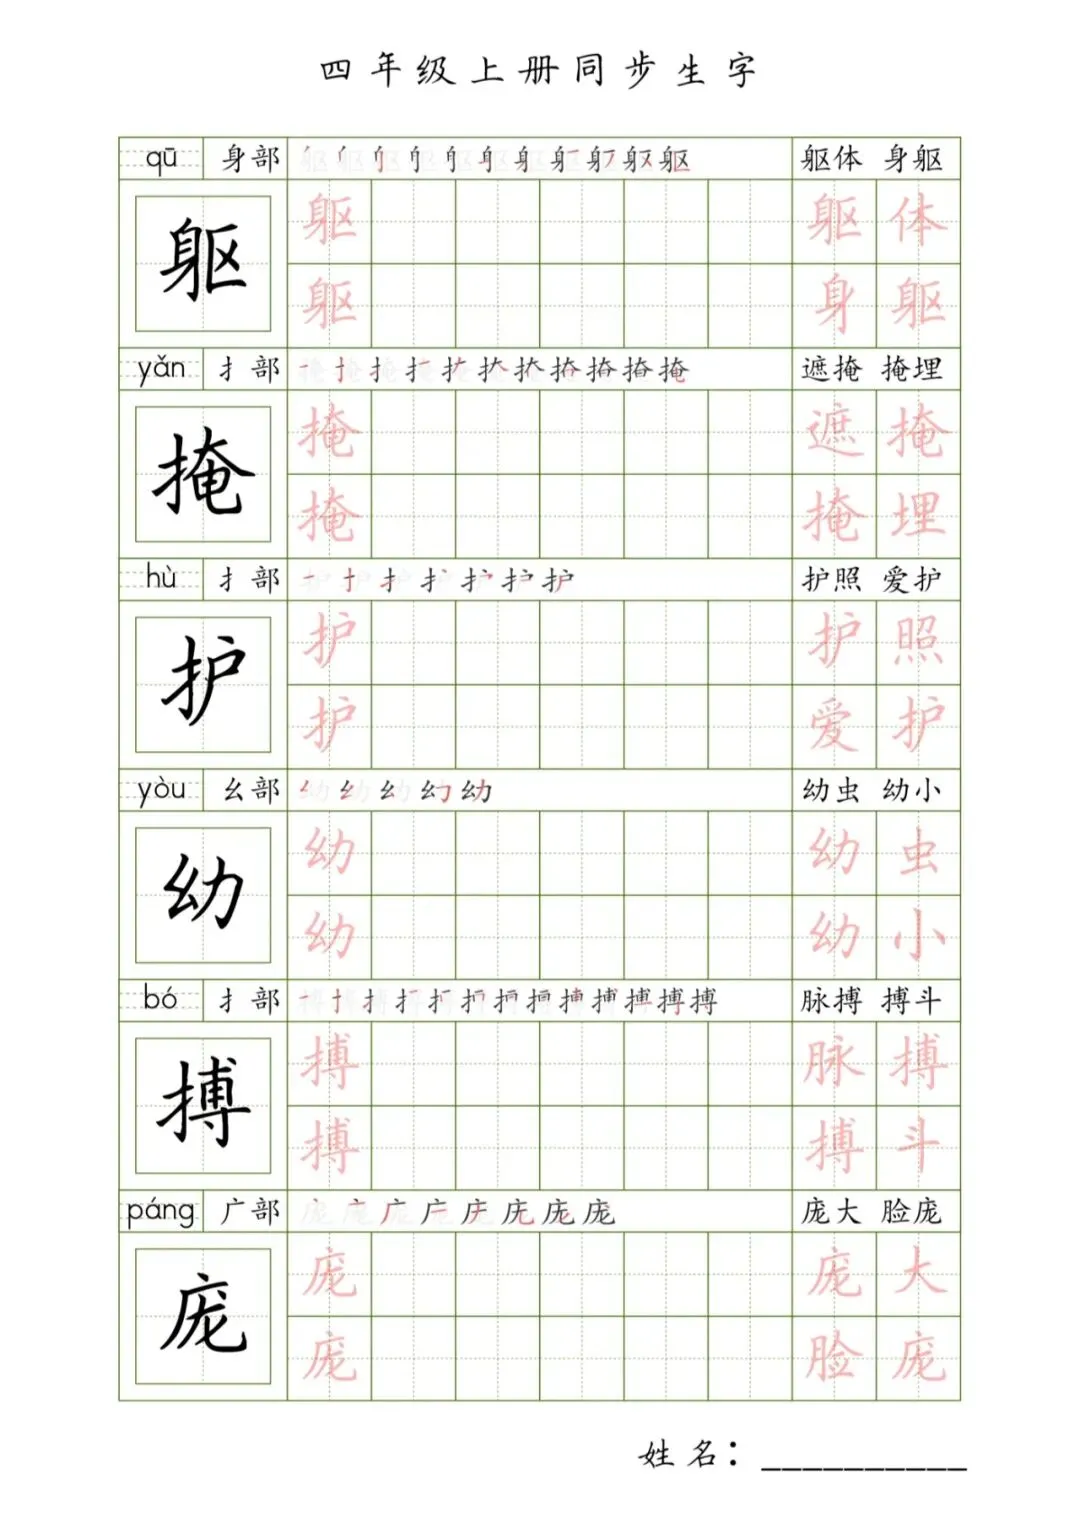 四年级上册同步生字
qū 身部 躯体 身躯
躯 躯 躯体
躯 身躯
yǎn 扌部 遮掩 掩埋
掩 掩 遮掩
掩 掩埋
hù 扌部 护照 爱护
护 护 护照
护 爱护
yòu 幺部 幼虫 幼小
幼 幼 幼虫
幼 幼小
bó 扌部 脉搏 搏斗
搏 搏 脉搏
搏 搏斗
páng 广部 庞大 脸庞
庞 庞 庞大
庞 脸庞
姓名：__________